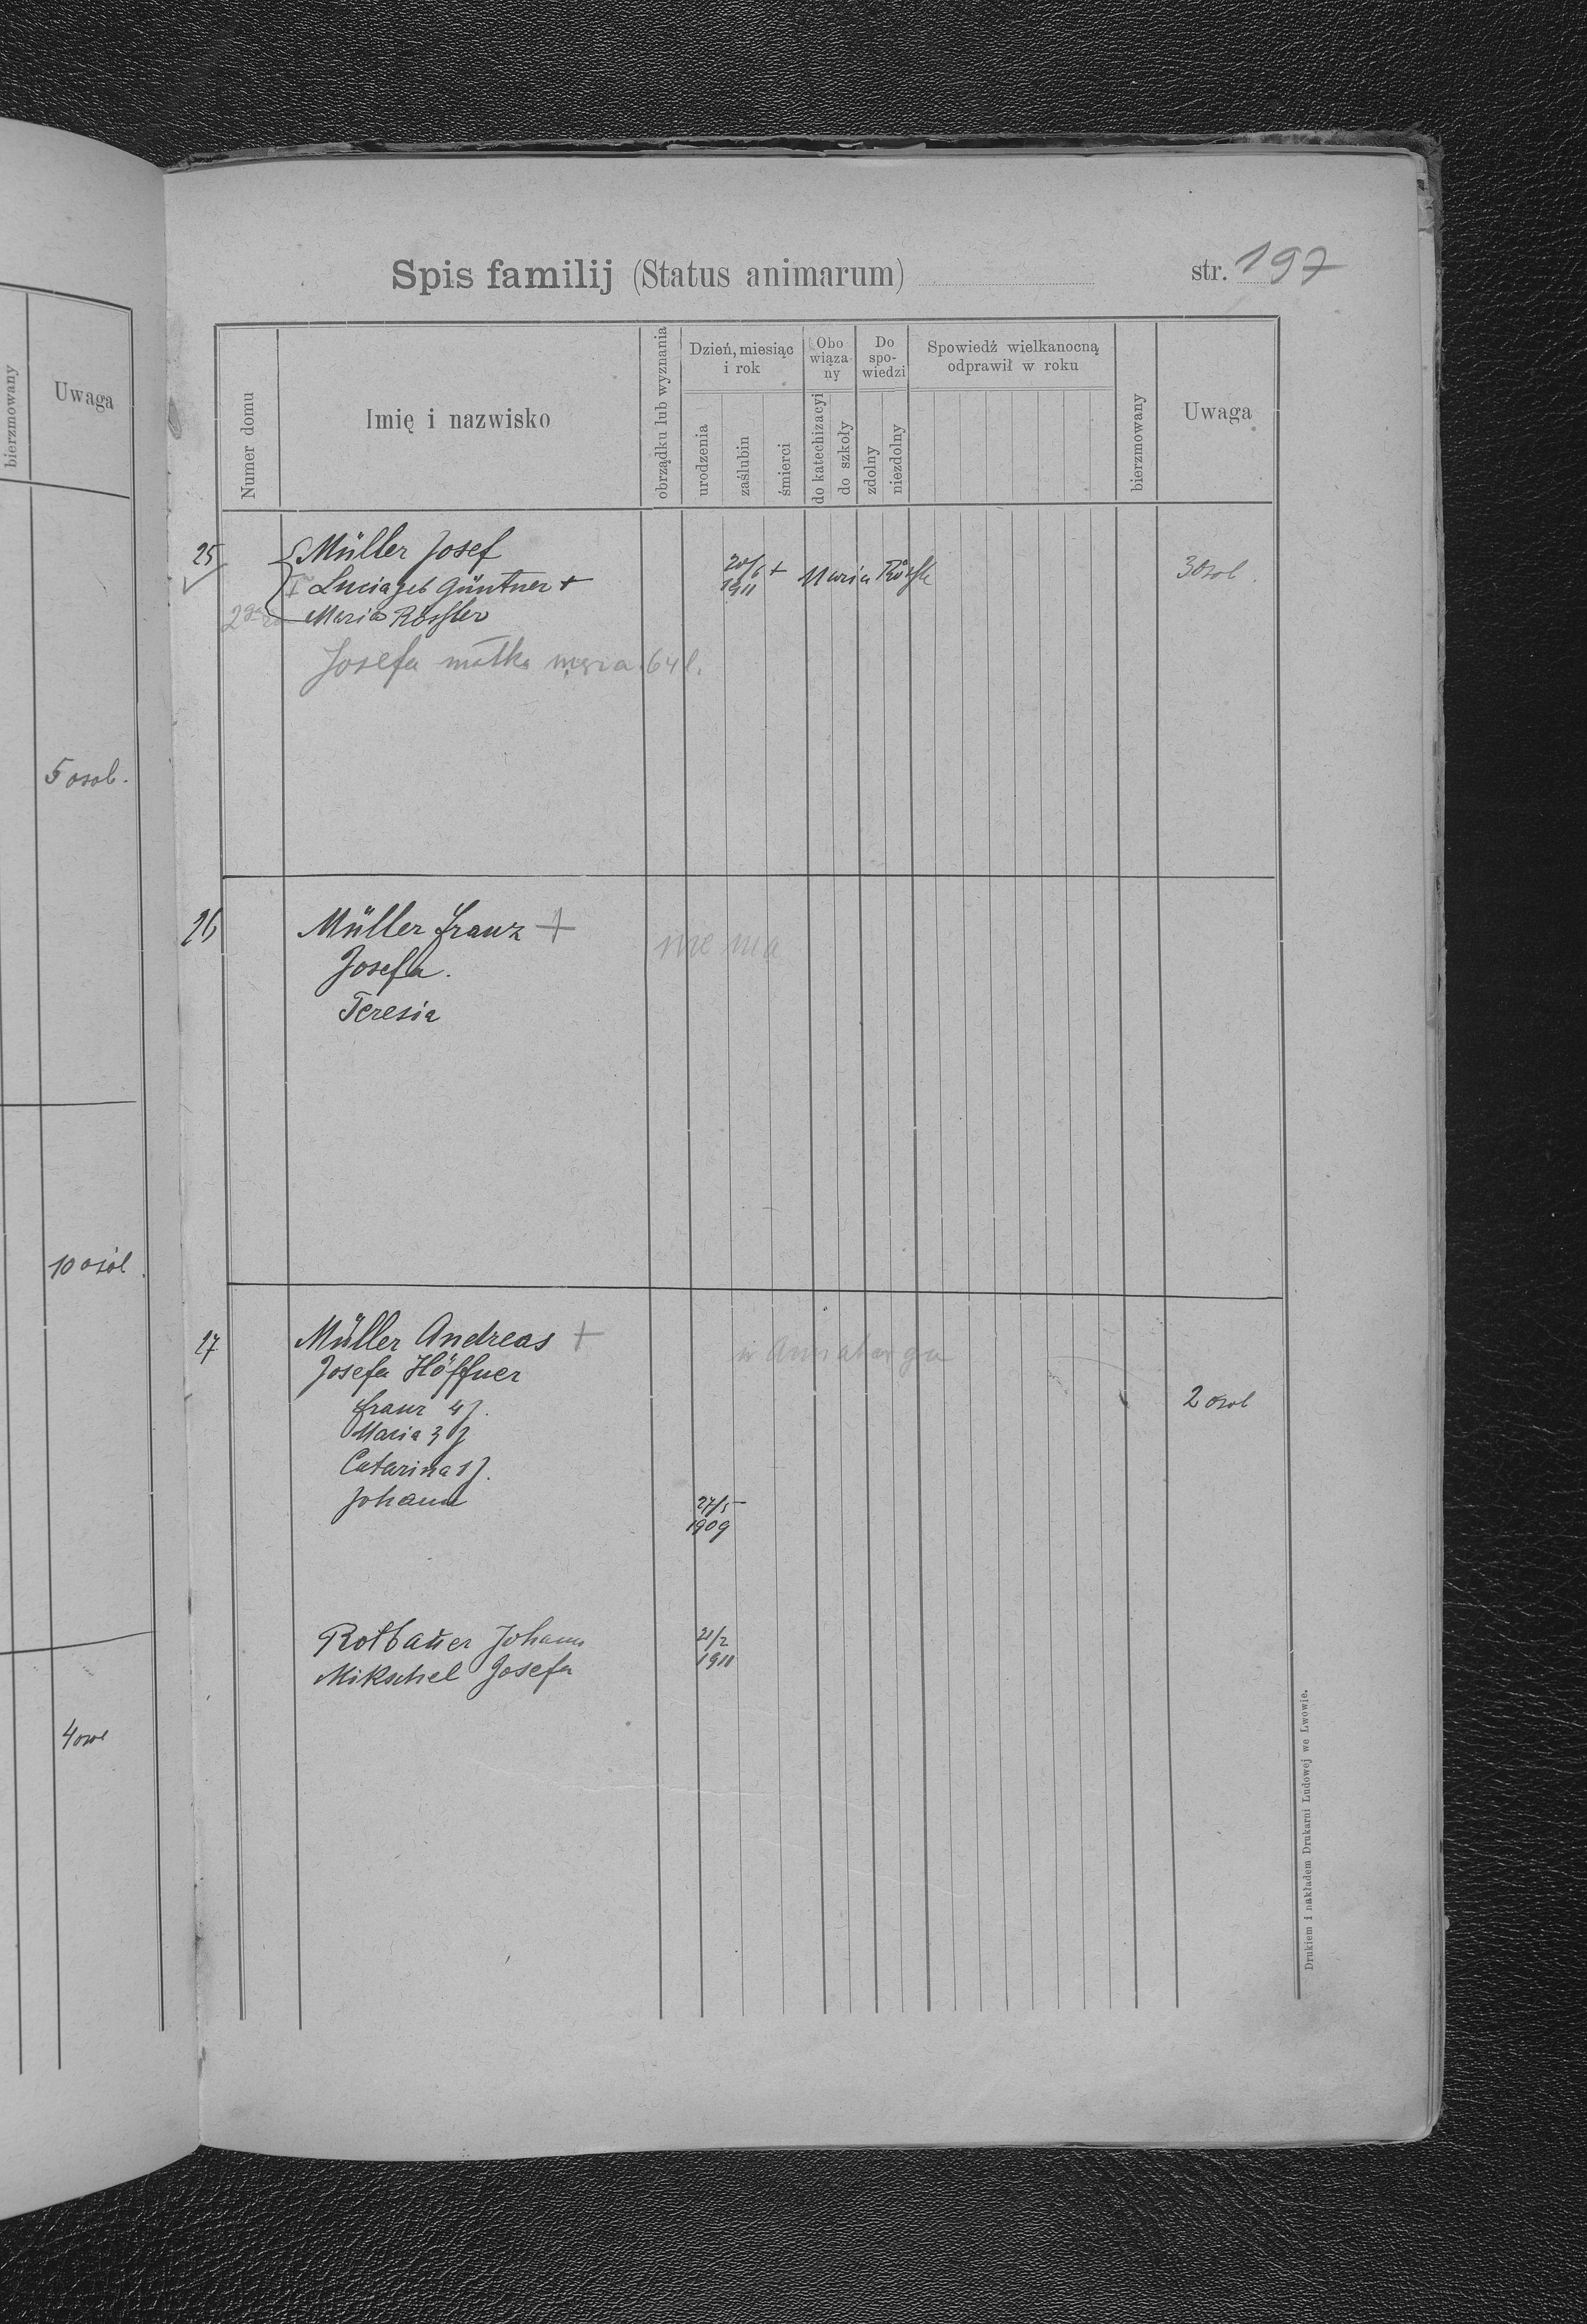 bierzmowany
Uwaga
5 osob.
10 osób.
4 osob
Spis familij (Status animarum)
str. 197
Numer domu
Imię i nazwisko
obrządku lub wyznania
Dzień, miesiąc
i rok
urodzenia
zaślubin
śmierci
Obo
wiąza-
ny
do katechizacyi
do szkoły
Do
spo-
wiedzi
zdolny
niezdolny
Spowiedź wielkanocną
odprawił w roku
bierzmowany
Uwaga
25
Müller Josef
Lucia geb Güntner +
20/6 + Maria
1911
3 osob.
Maria Rössler
Josefa matka męża 64 l.
26
Müller Franz +
nie ma
Josefa.
Teresia
27
Müller Andreas +
Josefa Höffner
Franz 4 J.
2 osob
Maria 3 J
Catarina 1 J.
Johann
27/5
1909
Rotbauer Johann
21/2
1911
Mikschel Josefa
Drukiem i nakładem Drukarni Ludowej we Lwowie.